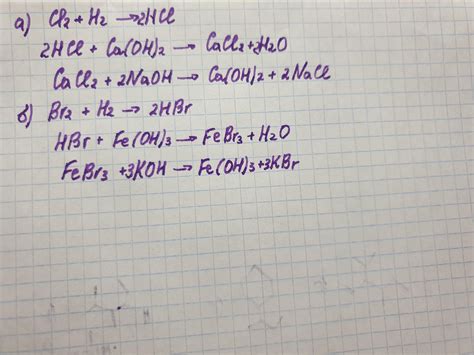 а) Cl2 + H2 → 2HCl
2HCl + Ca(OH)2 → CaCl2 + 2H2O
CaCl2 + 2NaOH → Ca(OH)2 + 2NaCl
б) Br2 + H2 → 2HBr
HBr + Fe(OH)3 → FeBr3 + H2O
FeBr3 + 3KOH → Fe(OH)3 + 3KBr